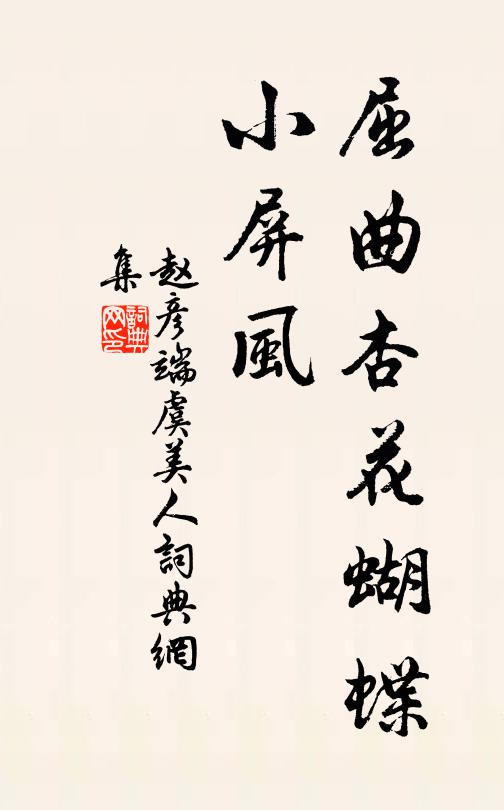 屈曲杏花蝴蝶
小屏風
赵彥端虞美人詞典網
集
詞典
网印